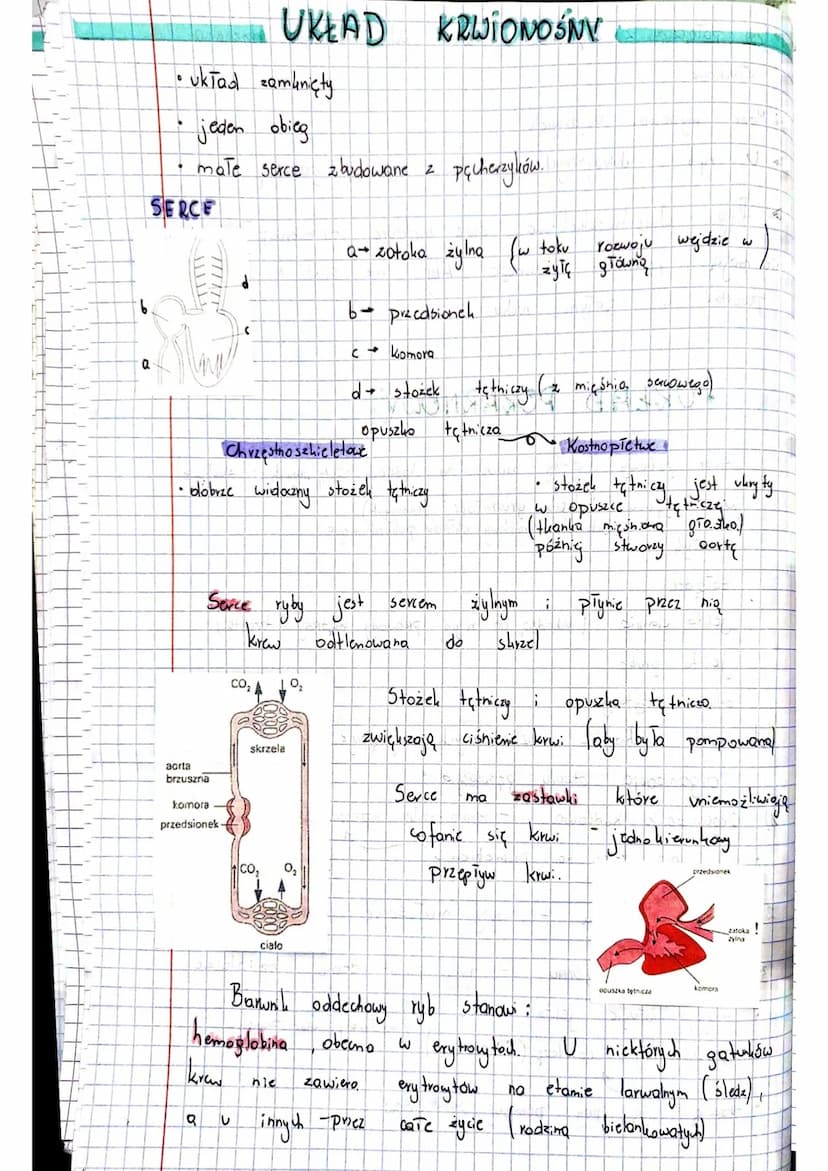 UKŁAD KRWIONOŚNY
• układ zamknięty
• jeden obieg
• małe serce zbudowane z pęcherzyków.
SERCE
a → zatoka żylna (w toku rozwoju wejdzie w żyłę główną)
b → przedsionek
c → komora
d → stożek tętniczy (z mięśnia sercowego)
opuszko tętnicza
a
b
c
d
Chrzęstnoszkieletowe
• dobrze widoczny stożek tętniczy
Kostnopłetwe
• stożek tętniczy jest ukryty
w opuszce tętniczej
(tkanka mięśniowa gładka)
późnię stworzy aortę
Serce ryby jest sercem żylnym i płynie przez nią
krew odtlenowana do skrzel
CO2 O2
skrzela
aorta
brzuszna
komora
przedsionek
CO2 O2
ciało
Stożek tętniczy i opuszka tętnicza
zwiększają ciśnienie krwi (aby była pompowana)
Serce ma zastawki które uniemożliwiają
cofanie się krwi - jednokierunkowy
przepływ krwi.
przedsionek
zatoka !
żylna
opuszka tętnicza
komora
Barwnik oddechowy ryb stanowi:
hemoglobina, obecna w erytrocytach. U niektórych gatunków
krew nie zawiera erytrocytów na etapie larwalnym (śledź),
a u innych - przez całe życie (rodzina bielankowatych)